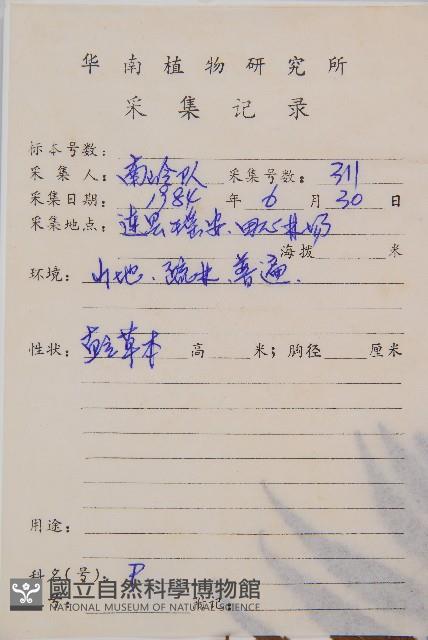 华南植物研究所
采集记录
标本号数：
采集人：南岭队 采集号数：311
采集日期：1984年6月30日
采集地点：连县瑶安．田心林场
海拨 米
环境：山地．疏林．普遍．
性状：直立草本 高 米；胸径 厘米
用途：
科名(号)：P
國立自然科學博物館
NATIONAL MUSEUM OF NATURAL SCIENCE